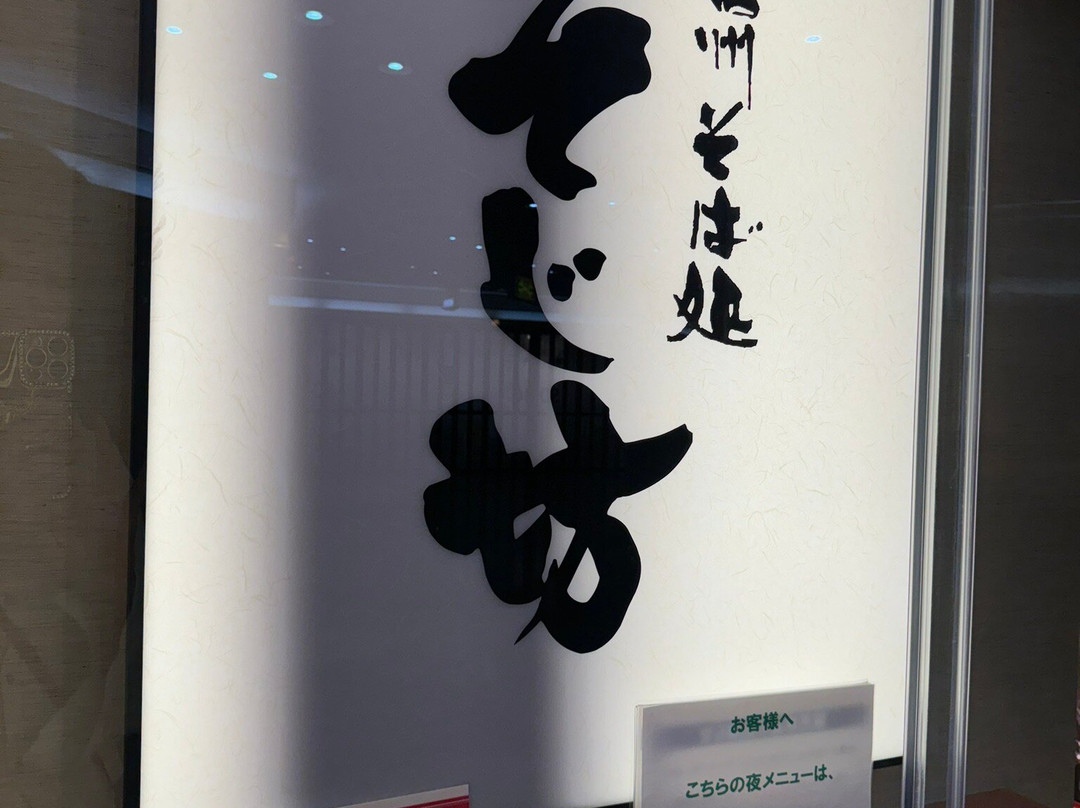 州そば処
そじ坊
お客様へ
こちらの夜メニューは、